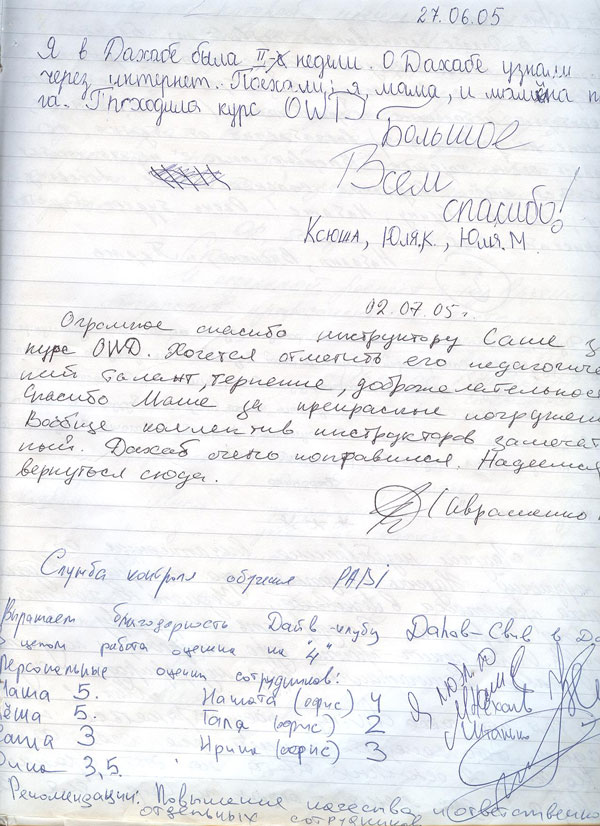 27.06.05
Я в Дахабе была II-х недели. О Дахабе узнали
через интернет. Поехали: я, мама, и мамина п
га. Проходила курс OWD
Большое
Всем
спасибо!
Ксюша, Юля.К., Юля.М.
02.07.05г.
Огромное спасибо инструктору Саше з
курс OWD. Хочется отметить его педагогиче
кий талант, терпение, доброжелательнос
Спасибо Маше за прекрасные погружен
Вообще коллектив инструкторов замечат
ный. Дахаб очень понравился. Надеемся
вернуться сюда.
(Авраменко
Служба контроля обучения PADi
Выражает благодарность Дайв-клубу Dahab-
в целом работа оценена на "4"
Персональные оценки сотрудников:
Маша 5. Наташа (офис) 4
Лёша 5. Таля (офис) 2
Саша 3 Ирина (офис) 3
3,5.
Я люблю
Рекомендации: Повышение качества и ответственно
отдельных сотрудников